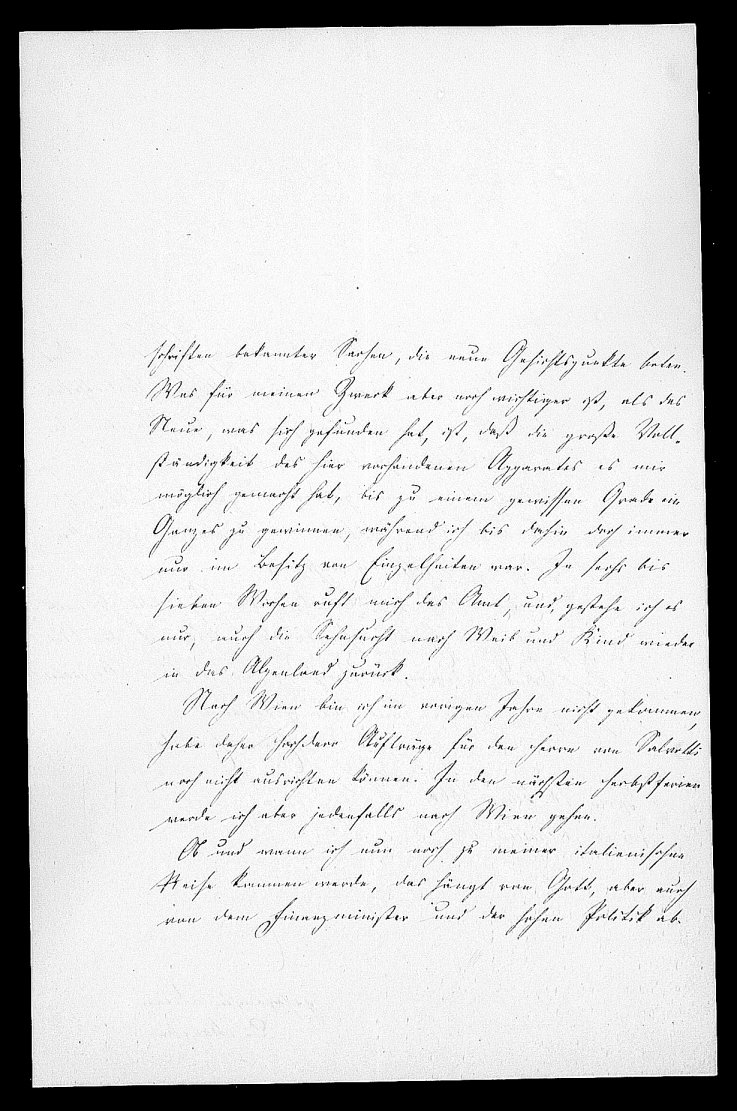 schriften bekannter Sachen, die neue Gesichtspunkte boten.
Was für meinen Zweck aber noch wichtiger ist, als das
Neue, was sich gefunden hat, ist, daß die große Voll-
ständigkeit des hier vorhandenen Apparates es mir
möglich gemacht hat, bis zu einem gewissen Grade ein
Ganzes zu gewinnen, während ich bis dahin doch immer
nur im Besitz von Einzelheiten war. In sechs bis
sieben Wochen ruft mich das Amt, und, gestehe ich es
nur, auch die Sehnsucht nach Weib und Kind wieder
in das Alpenland zurück.
Nach Wien bin ich im vorigen Jahre nicht gekommen,
habe daher Hochdero Aufträge für den Herrn von Salvotti
noch nicht ausrichten können. In den nächsten Herbstferien
werde ich aber jedenfalls nach Wien gehen.
Ob und wann ich nun noch zu meiner italienischen
Reise kommen werde, das hängt von Gott, aber auch
von dem Finanzminister und der hohen Politik ab.